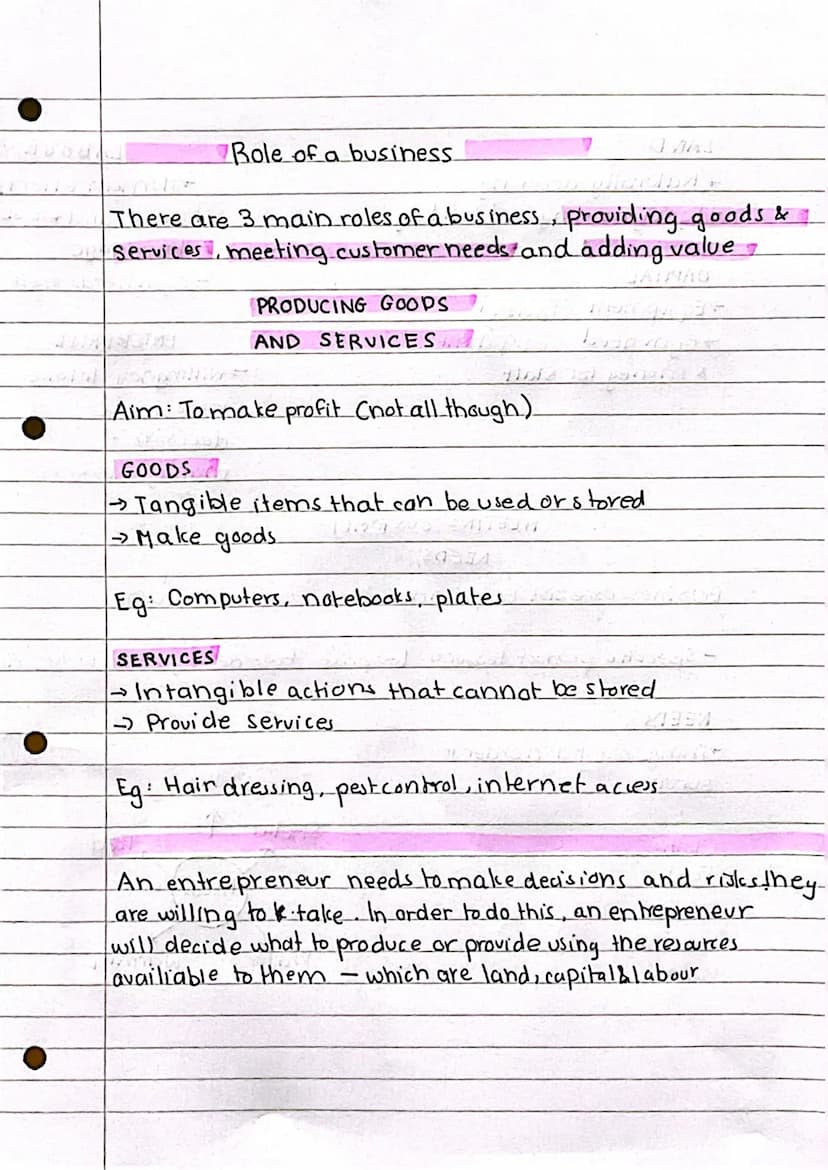 Role of a business
There are 3 main roles of a business, providing goods &
services, meeting customer needs and adding value
PRODUCING GOODS
AND SERVICES
Aim: To make profit (not all though)
GOODS
→ Tangible items that can be used or stored
→ Make goods
Eg: Computers, notebooks, plates
SERVICES
→ Intangible actions that cannot be stored
→ Provide services
Eg: Hair dressing, pest control, internet access
An entrepreneur needs to make decisions and risks they
are willing to take. In order to do this, an entrepreneur
will decide what to produce or provide using the resources
availiable to them – which are land, capital & labour